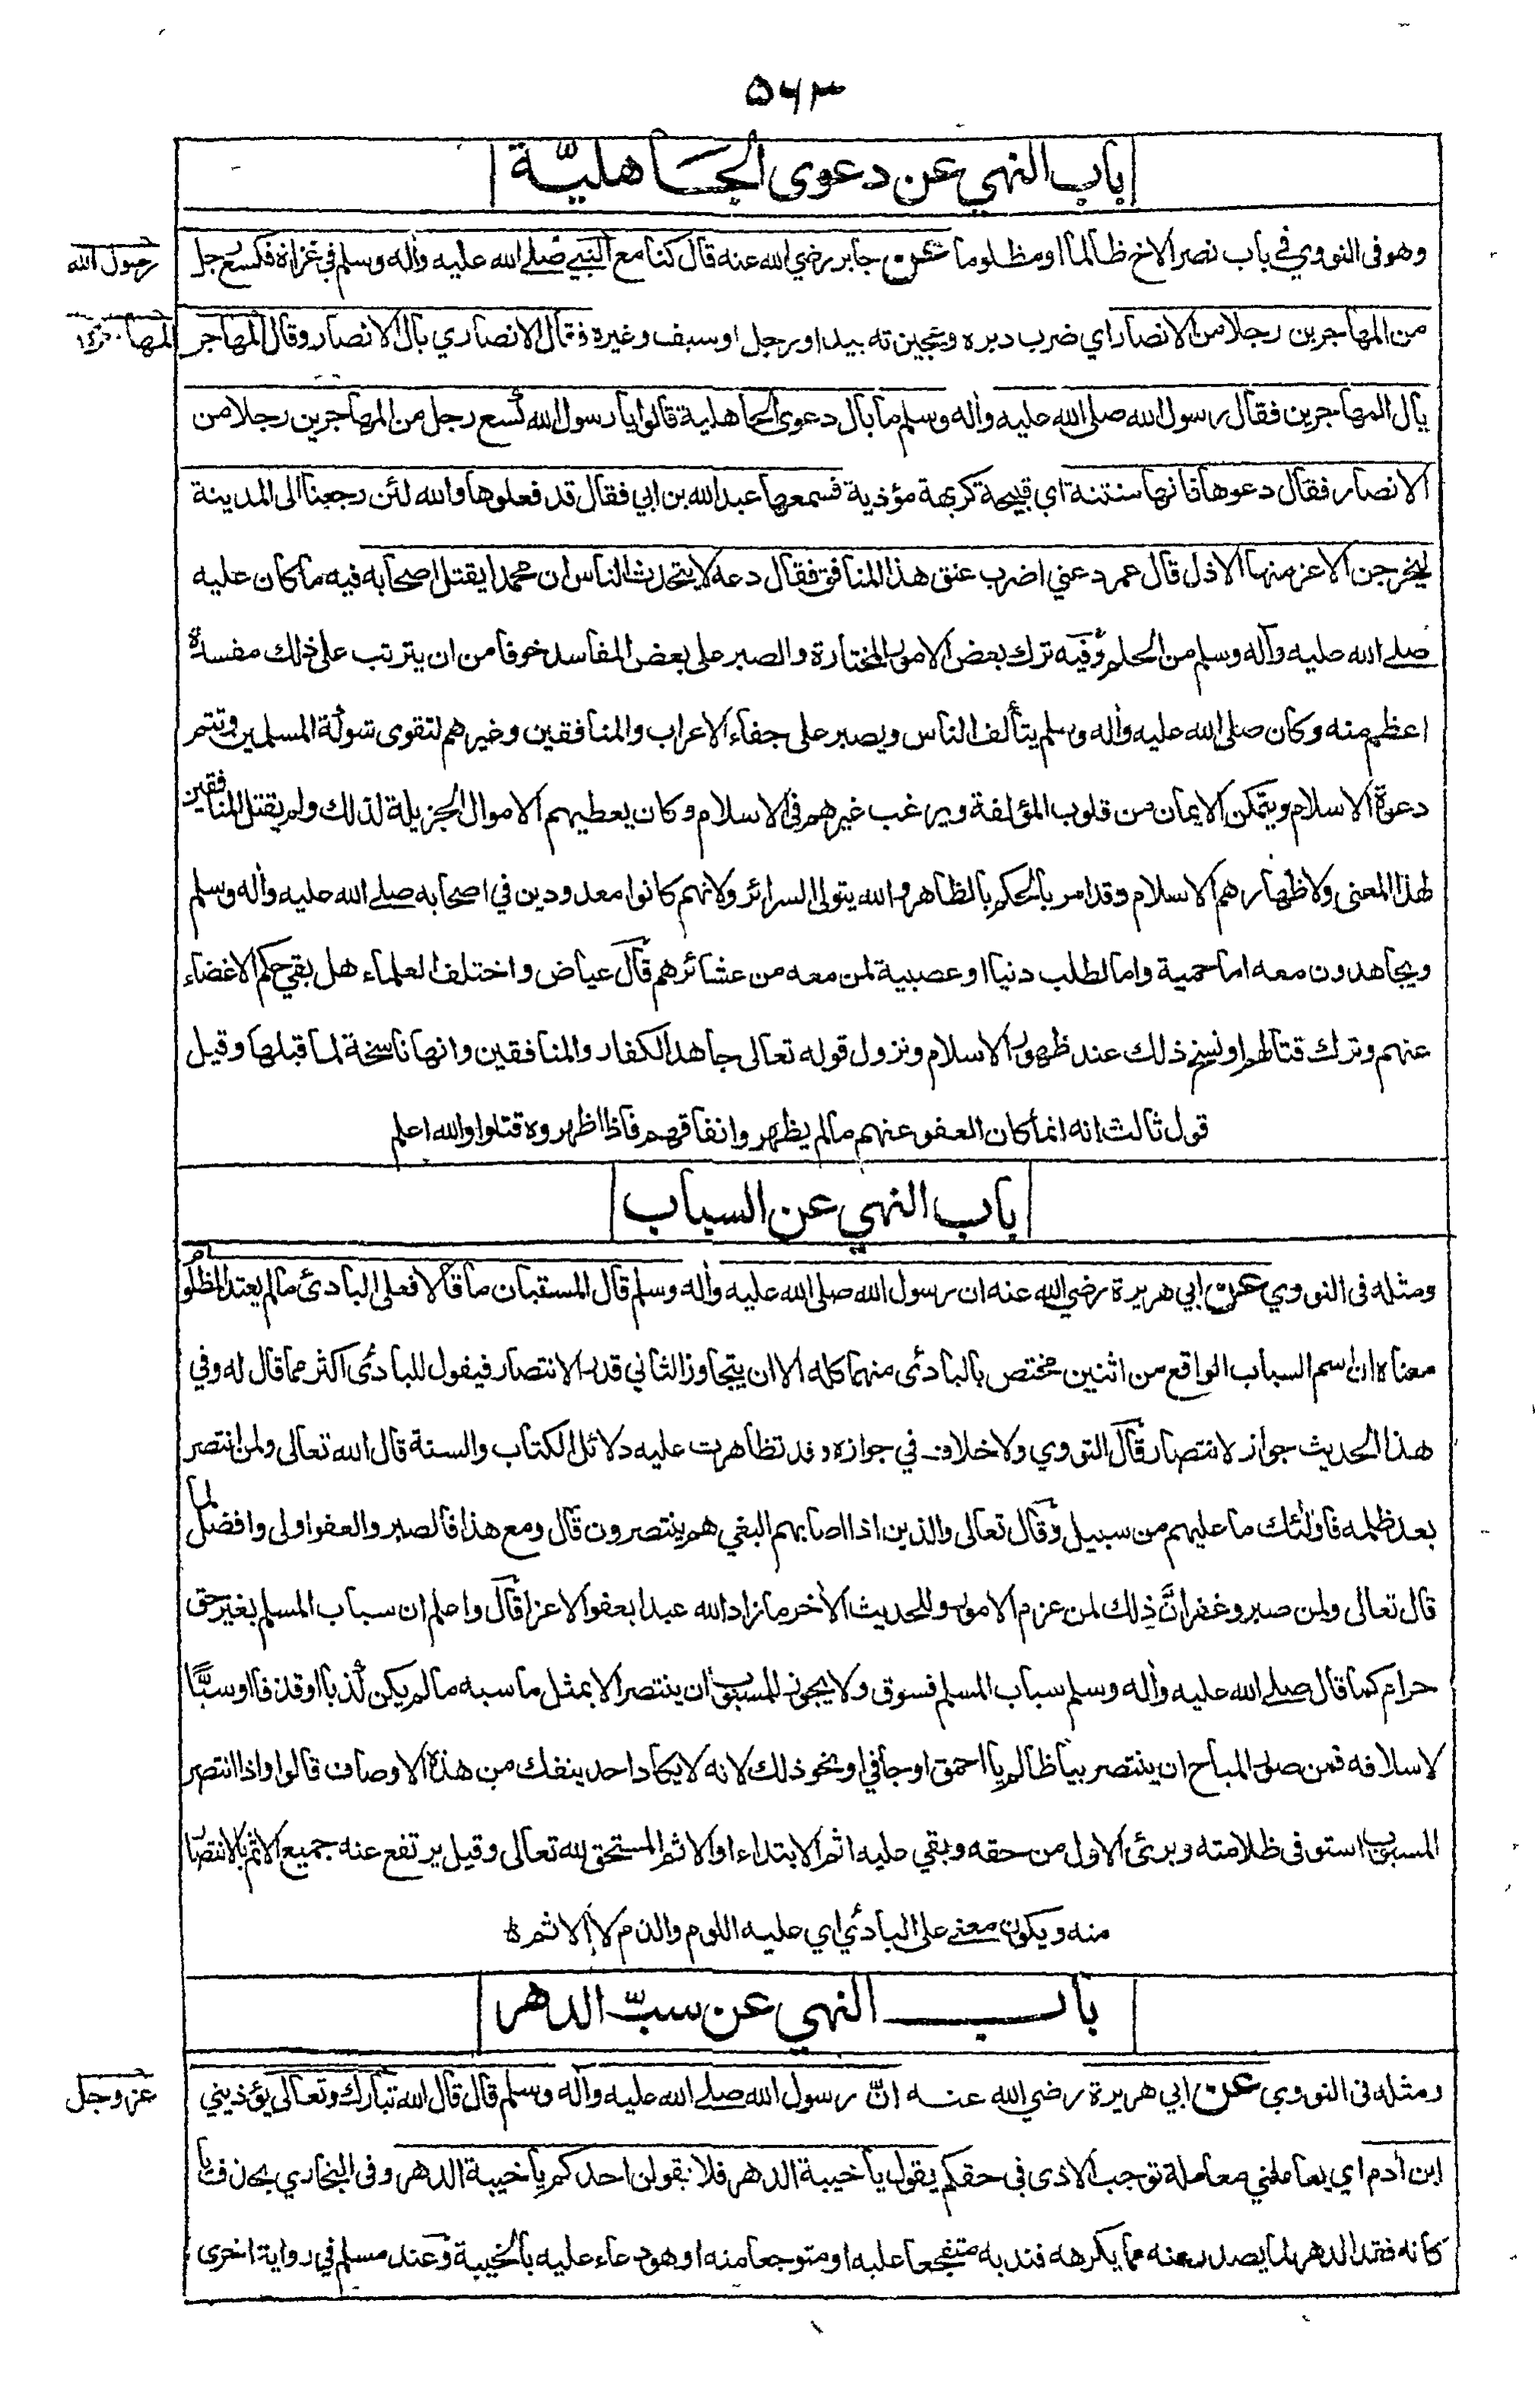 ۵۶۳
باب النهي عن دعوى الجاهليّة
وهو فى النووي في باب نصر الاخ ظالما او مظلوما عن جابر رضي الله عنه قال كنا مع النبي صلے الله عليه وأله وسلم في غزاة فكسع رجل
رسول الله
من المهاجرين رجلا من الانصار اي ضرب دبره وعجيزته بيد او برجل او سيف وغيره فقال الانصاري يال الانصار وقال المهاجر
يال المهاجرين فقال رسول الله صلى الله عليه وأله وسلم ما بال دعوى الجاهلية قالوا يا رسول الله كسع رجل من المهاجرين رجلا من
الانصار فقال دعوها فانها منتنة اي قبيحة كريهة مؤذية فسمعها عبد الله بن ابي فقال قد فعلوها والله لئن رجعنا الى المدينة
ليخرجن الاعز منها الاذل قال عمر دعني اضرب عنق هذا المنافق فقال دعه لا يتحدث الناس ان محمدا يقتل اصحابه فيه ما كان عليه
صلے الله عليه وآله وسلم من الحلم وفيه ترك بعض الامور المختارة والصبر على بعض المفاسد خوفا من ان يترتب على ذلك مفسدة
اعظم منه وكان صلى الله عليه وأله وسلم يتألف الناس ويصبر على جفاء الاعراب والمنافقين وغيرهم لتقوى شوكة المسلمين وتتم
دعوة الاسلام ويتمكن الايمان من قلوب المؤلفة ويرغب غيرهم فى الاسلام وكان يعطيهم الاموال الجزيلة لذلك ولم يقتل المنافقين
لهذا المعنى ولاظهارهم الاسلام وقد امر بالحكم بالظاهر والله يتولى السرائر ولانهم كانوا معدودين في اصحابه صلے الله عليه وأله وسلم
ويجاهدون معه اما حمية واما لطلب دنيا او عصبية لمن معه من عشائرهم قال عياض واختلف العلماء هل بقي حكم الاغضاء
عنهم وترك قتالهم او نسخ ذلك عند ظهور الاسلام ونزول قوله تعالى جاهد الكفار والمنافقين وانها ناسخة لما قبلها وقيل
قول ثالث انه انما كان العفو عنهم ما لم يظهروا نفاقهم فاذا اظهروه قتلوا والله اعلم
باب النهي عن السباب
ومثله فى النووي عن ابي هريرة رضي الله عنه ان رسول الله صلى الله عليه وأله وسلم قال المستبان ما قالا فعلى البادئ ما لم يعتد المظلوم
معناه ان اسم السباب الواقع من اثنين مختص بالبادئ منهما كله الا ان يتجاوز الثاني قدر الانتصار فيقول للبادئ اكثر مما قال له وفي
هذا الحديث جواز لانتصار قال النووي ولا خلاف في جوازه وقد تظاهرت عليه دلائل الكتاب والسنة قال الله تعالى ولمن انتصر
بعد ظلمه فاولئك ما عليهم من سبيل وقال تعالى والذين اذا اصابهم البغي هم ينتصرون قال ومع هذا فالصبر والعفو اولى وافضل لما
قال تعالى ولمن صبر وغفر انَّ ذِلك لمن عزم الامور وللحديث الأخر ما زاد الله عبدا بعفو الا عزا قال واعلم ان سباب المسلم بغير حق
حرام كما قال صلے الله عليه وأله وسلم سباب المسلم فسوق ولا يجوز للمسبوب ان ينتصر الا بمثل ما سبه ما لم يكن كذبا او قذفا او سبًّا
لاسلافه فمن صور المباح ان ينتصر بيا ظالم يا احمق او جافي او نحو ذلك لانه لا يكاد احد ينفك من هذه الاوصاف قالوا واذا انتصر
المسبوب استوفى ظلامته وبرئ الاول من حقه وبقي عليه اثم الابتداء او الاثم المستحق لله تعالى وقيل يرتفع عنه جميع الاثم بالانتصار
منه ويكون معنے على البادئ اي عليه اللوم والذم لا الاثم
باب النهي عن سبّ الدهر
ومثله فى النووي عن ابي هريرة رضي الله عنه انّ رسول الله صلے الله عليه وأله وسلم قال قال الله تبارك وتعالى يؤذيني
عز وجل
ابن أدم اي يعاملني معاملة توجب الاذى في حقكم يقول يا خيبة الدهر فلا يقولن احدكم يا خيبة الدهر وفى البخاري بحذف يا
كانه فقد الدهر لما يصدر عنه مما يكرهه فندبه متفجعا عليه او متوجعا منه او هو دعاء عليه بالخيبة وعند مسلم في رواية اخرى